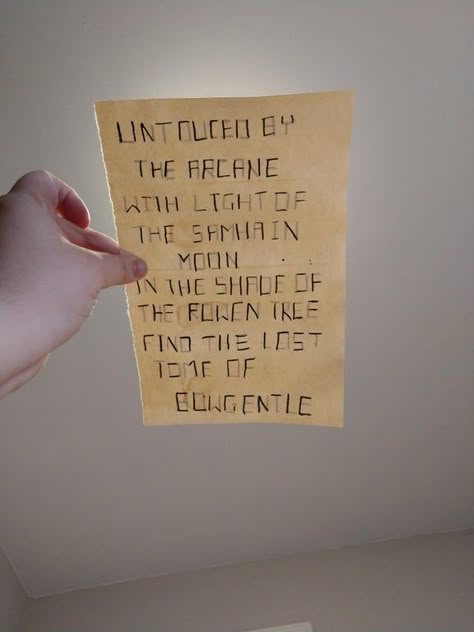 UNTOUCED BY
THE ARCANE
WITH LIGHT OF
THE SAMHAIN
MOON
IN THE SHADE OF
THE ROWEN TREE
FIND THE LOST
TOME OF
BOWGENTLE